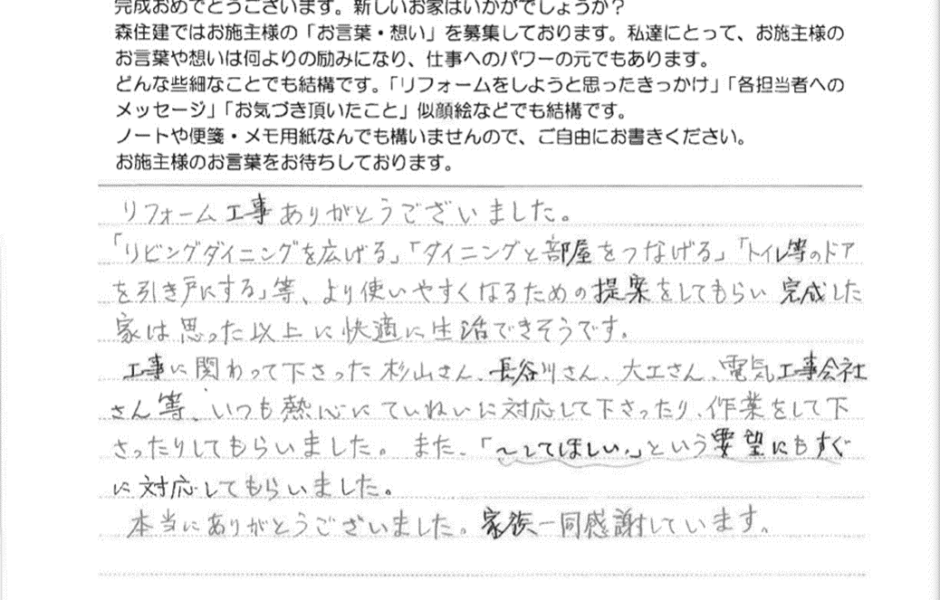 完成おめでとうございます。新しいお家はいかがでしょうか？
森住建ではお施主様の「お言葉・想い」を募集しております。私達にとって、お施主様の
お言葉や想いは何よりの励みになり、仕事へのパワーの元でもあります。
どんな些細なことでも結構です。「リフォームをしようと思ったきっかけ」「各担当者への
メッセージ」「お気づき頂いたこと」似顔絵などでも結構です。
ノートや便箋・メモ用紙なんでも構いませんので、ご自由にお書きください。
お施主様のお言葉をお待ちしております。
リフォーム工事ありがとうございました。
「リビングダイニングを広げる」「ダイニングと部屋をつなげる」「トイレ等のドア
を引き戸にする」等、より使いやすくなるための提案をしてもらい 完成した
家は思った以上に快適に生活できそうです。
工事に関わって下さった杉山さん、長谷川さん、大工さん、電気工事会社
さん等、いつも熱心にていねいに対応して下さったり、作業をして下
さったりしてもらいました。また、「〜してほしい。」という要望にもすぐ
に対応してもらいました。
本当にありがとうございました。家族一同感謝しています。